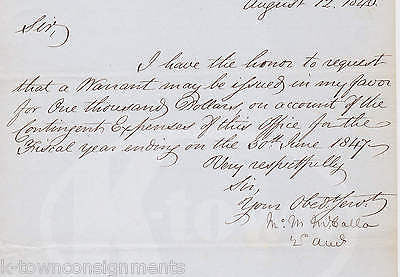 August 12. 1846.
Sir,
I have the honor to request
that a Warrant may be issued in my favor
for One thousand Dollars, on account of the
Contingent Expenses of this Office for the
Fiscal year ending on the 30th June 1847.
Very respectfully
Sir,
Your Obed. Servt.
2nd Aud
k-townconsignments.com